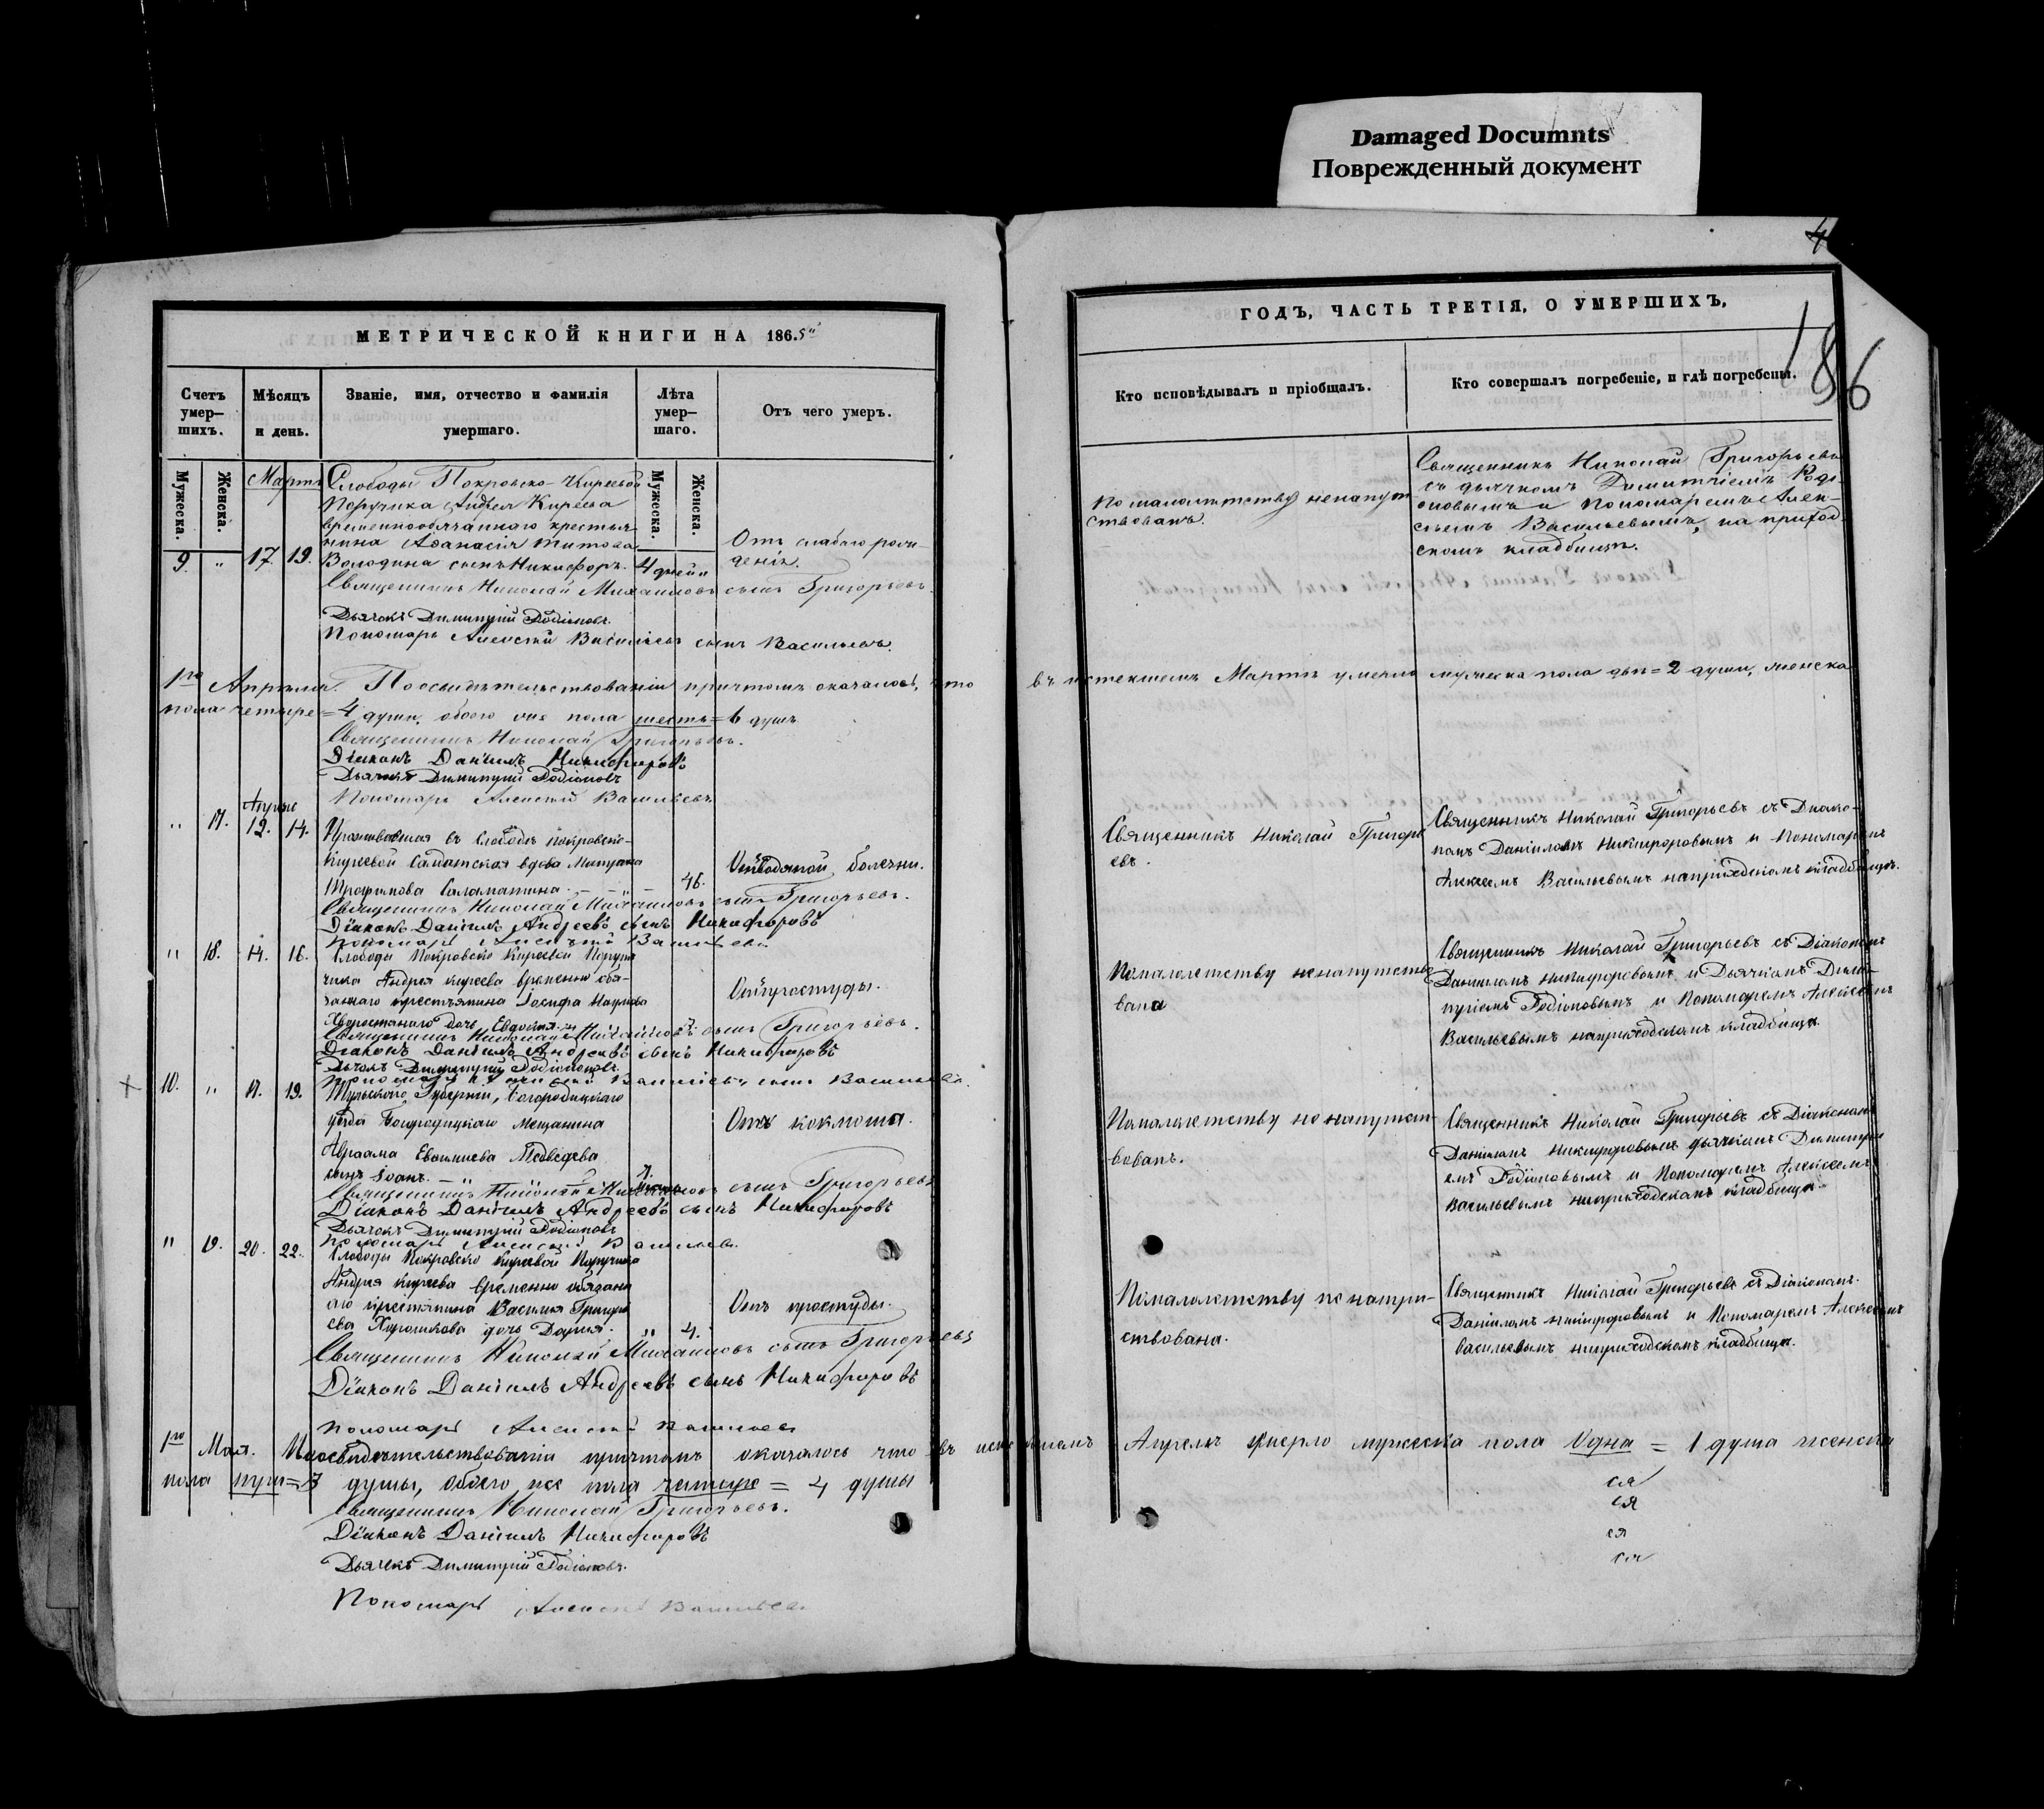 Damaged Documnts
Поврежденный документ
МЕТРИЧЕСКОЙ КНИГИ НА 1865
Счетъ умер-шихъ.
Мѣсяцъ и день.
Званіе, имя, отчество и фамилія умершаго.
Лѣта умер-шаго.
Отъ чего умеръ.
Мужеска.
Женска.
Мартъ
Мужеска.
Женска.
Слободы Покровско-Киреевой
Поручика Андрея Киреева
временнообязаннаго крестья-
нина Аѳанасія Титова
9. " 17. 19. Володина сынъ Никифоръ. 4 дней "
Отъ слабаго рож-
денія.
Священникъ Николай Михаиловъ сынъ Григорьевъ.
Дьячекъ Димитрій Родіоновъ.
Пономарь Алексѣй Васильевъ сынъ Васильевъ.
1го Апрѣля. По освидѣтельствованіи причтомъ оказалось, что
пола четыре = 4 души, обоего же пола шесть = 6 душъ
Священникъ Николай Григорьевъ.
Діаконъ Даніилъ Никифоровъ
Дьячекъ Димитрій Родіоновъ
Пономарь Алексѣй Васильевъ
Апрѣль
" 17. 12. 14. Проживавшая въ Слободѣ Покровско-
Киреевой Солдатская вдова
Трофимова Саламатина. 46.
Отъ водяной болезни.
Священникъ Николай Михаиловъ сынъ Григорьевъ.
Діаконъ Даніилъ Андреевъ сынъ Никифоровъ
Пономарь Алексѣй Васильевъ
" 18. 14. 16. Слободы Покровско Киреевой Поручи
чика Андрея Киреева временно обя-
заннаго крестьянина Іосифа Наумова
дочь Евдокія.
Отъ простуды.
Священникъ Николай Михаиловъ сынъ Григорьевъ.
Діаконъ Даніилъ Андреевъ сынъ Никифоровъ
Дьячекъ Димитрій Родіоновъ.
Пономарь Алексѣй Васильевъ сынъ Васильевъ.
10. " 17. 19. Тульской Губерніи, Богородицкаго
уѣзда Богородицкаго Мещанина
Авраама Евѳимиева Медведева
сынъ Іоанъ.
Отъ коклюша.
Священникъ Николай Михаиловъ сынъ Григорьевъ
Діаконъ Даніилъ Андреевъ сынъ Никифоровъ
Дьячекъ Димитрій Родіоновъ
Пономарь Алексѣй Васильевъ.
" 19. 20. 22. Слободы Покровско Киреевой Поручика
Андрея Киреева временно обязан
аго крестьянина Василия Григорь
ева Хорошкова дочь Дария. " 4.
Отъ простуды.
Священникъ Николай Михаиловъ сынъ Григорьевъ
Діаконъ Даніилъ Андреевъ сынъ Никифоровъ
Пономарь Алексѣй Васильевъ
1го Мая. По освидѣтельствованіи причтомъ оказалось что въ истекшемъ
пола три = 3 души, обоего же пола четыре = 4 души
Священникъ Николай Григорьевъ.
Діаконъ Даніилъ Никифоровъ
Дьячекъ Димитрій Родіоновъ.
Пономарь Алексѣй Васильевъ.
4
186
ГОДЪ, ЧАСТЬ ТРЕТІЯ, О УМЕРШИХЪ,
Кто исповѣдывалъ и пріобщалъ.
Кто совершалъ погребеніе, и гдѣ погребены.
По малолѣтству ненапут-
ствованъ.
Священникъ Николай Григорьевъ
съ дьячкомъ Димитріемъ Роді-
оновымъ и Пономаремъ Алек-
сѣемъ Васильевымъ, на приход-
скомъ кладбищѣ.
въ истекшемъ Мартѣ умерло мужеска пола двѣ = 2 души, женска
Священникъ Николай Григорь
евъ.
Священникъ Николай Григорьевъ съ Диако-
номъ Даніиломъ Никифоровымъ и Пономаремъ
Алексеемъ Васильевымъ наприходскомъ кладбищѣ.
Помалолетству ненапутство
вана
Священникъ Николай Григорьевъ съ Діакономъ
Данииломъ Никифоровымъ и Дьячкомъ Дими-
тріемъ Родіоновымъ и Пономаремъ Алексеемъ
Васильевымъ наприходскомъ кладбище.
Помалолетству не напутст-
вованъ.
Священникъ Николай Григорьевъ съ Діакономъ
Даніиломъ Никифоровымъ дьячкомъ Димитри
емъ Родіоновымъ и Пономаремъ Алексеемъ
Васильевымъ наприходскомъ кладбище.
Помалолетству не напут-
ствована.
Священникъ Николай Григорьевъ съ Діакономъ
Данииломъ Никифоровымъ и Пономаремъ Алексеемъ
Васильевымъ наприходскомъ кладбище.
Апрелѣ умерло мужеска пола Одна = 1 душа женска